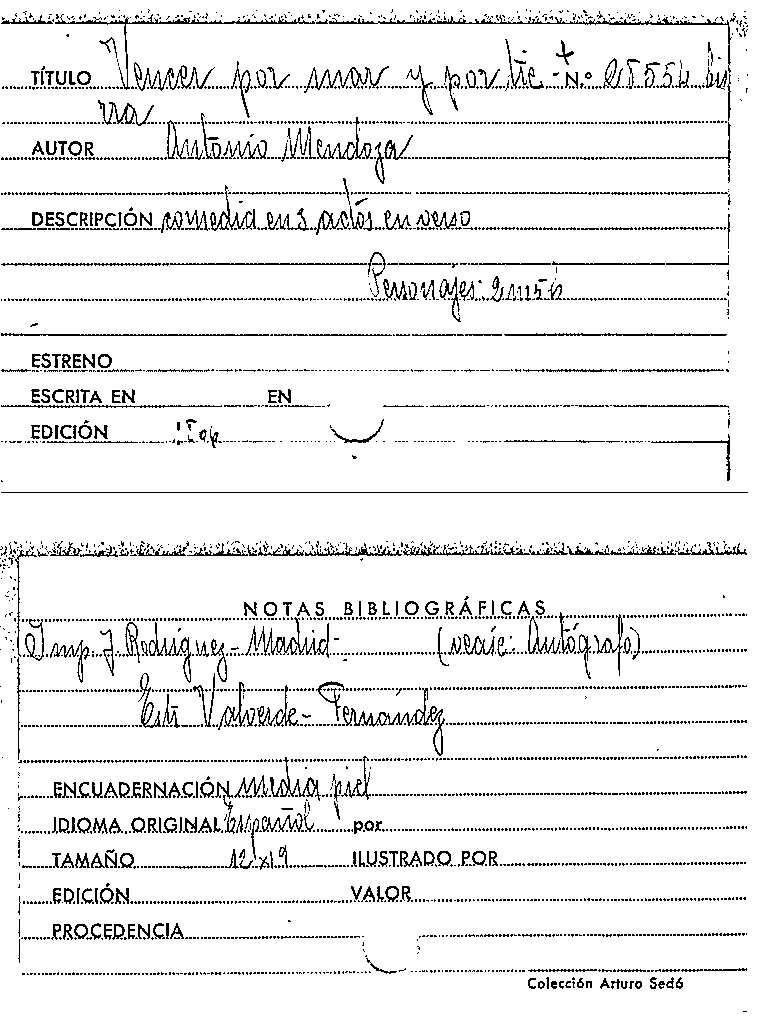 TÍTULO Vencer por mar y por tie- N.º 25554 bis
rra
AUTOR Antonio Mendoza
DESCRIPCIÓN comedia en 3 actos en verso
Personajes:
ESTRENO
ESCRITA EN EN
EDICIÓN
NOTAS BIBLIOGRÁFICAS
Imp. J. Rodriguez - Madrid - (vease: Autógrafo)
Valverde - Fernández
ENCUADERNACIÓN media piel
IDIOMA ORIGINAL Español por
TAMAÑO 12x19 ILUSTRADO POR
EDICIÓN VALOR
PROCEDENCIA
Colección Arturo Sedó